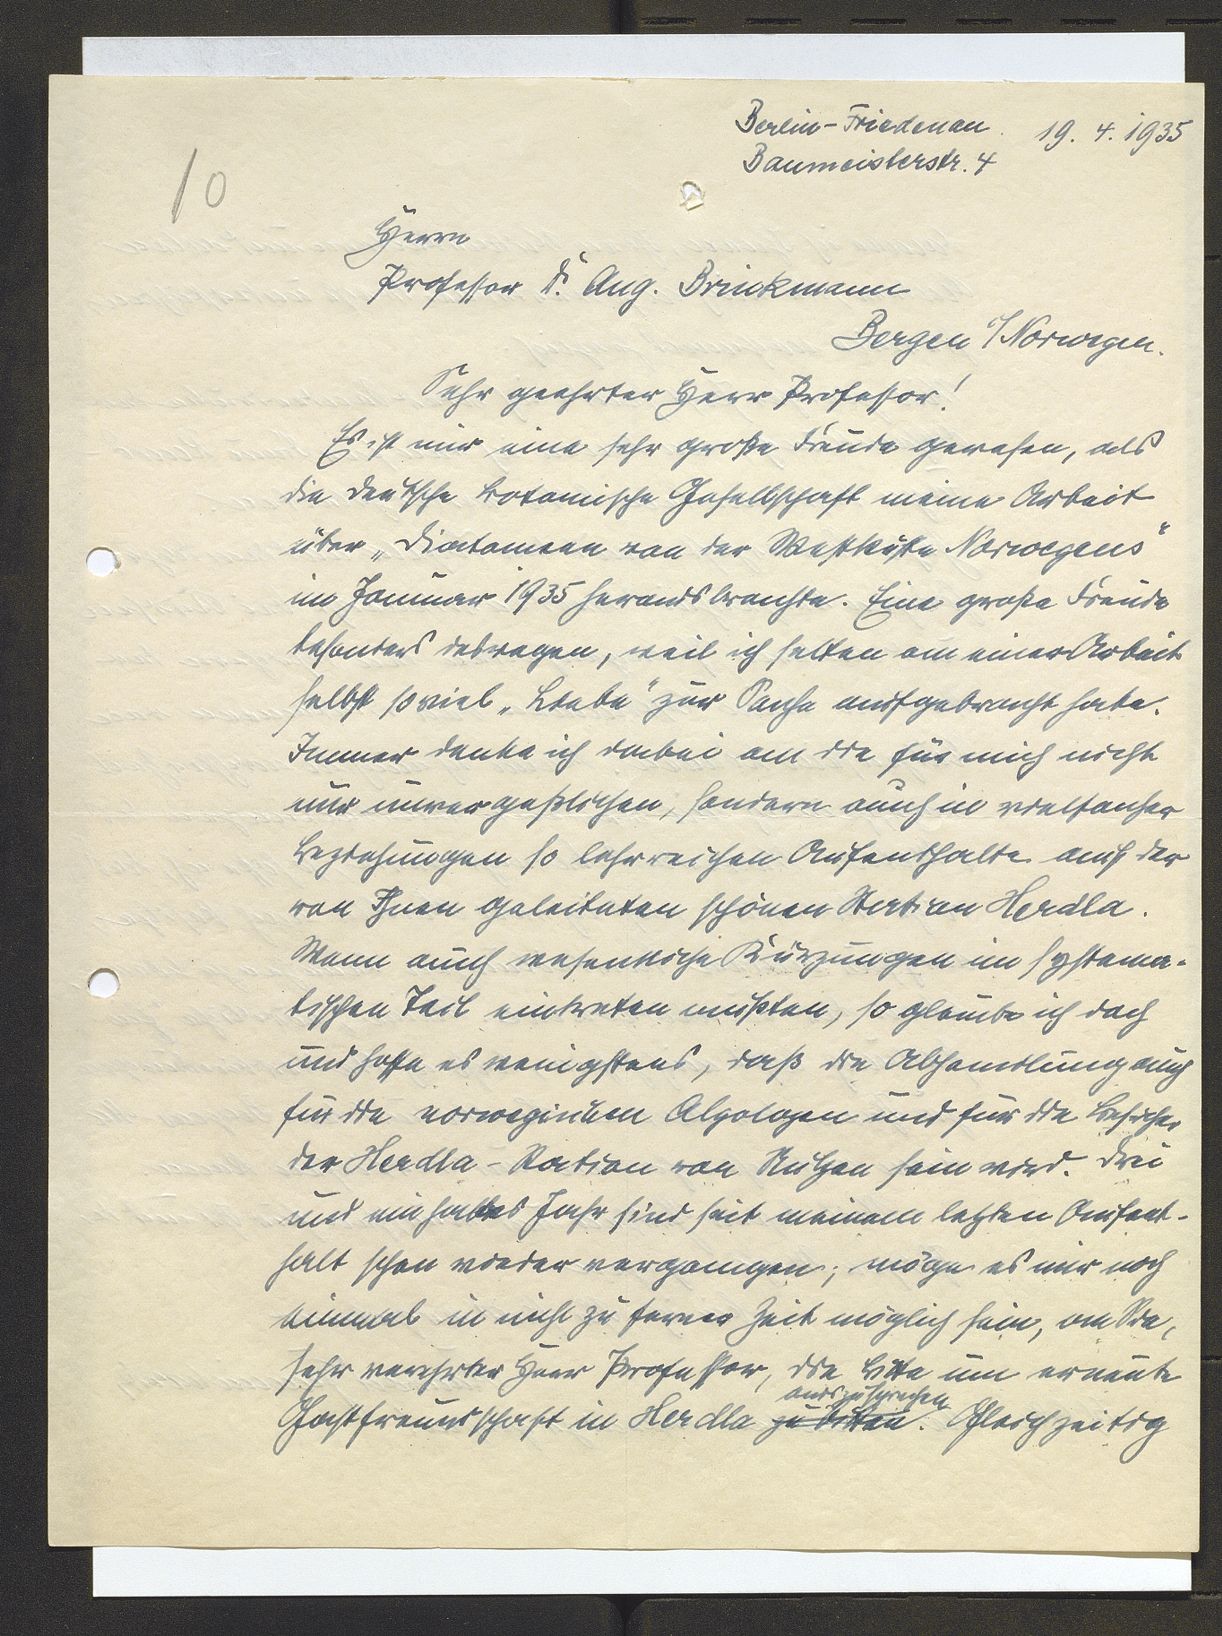 Berlin-Friedenau. 19. 4. 1935
Baumeisterstr. 4
10
Herrn
Professor Dr. Aug. Brinkmann
Bergen i/Norwegen.
Sehr geehrter Herr Professor!
Es ist mir eine sehr große Freude gewesen, als
die Deutsche Botanische Gesellschaft meine Arbeit
über „Diatomeen von der Westküste Norwegens"
im Januar 1935 herausbrachte. Eine große Freude
besonders deswegen, weil ich selten an einer Arbeit
selbst soviel „Liebe" zur Sache aufgebracht habe.
Immer denke ich dabei an die für mich nicht
nur unvergeßlichen, sondern auch in vielfacher
Beziehungen so lehrreichen Aufenthalte auf der
von Ihnen geleiteten schönen Station Herdla.
Wenn auch wesentliche Kürzungen im systema-
tischen Teil eintreten mußten, so glaube ich doch
und hoffe es wenigstens, daß die Abhandlung auch
für die norwegischen Algologen und für die Besucher
der Herdla-Station von Nutzen sein wird. Drei
und ein halbes Jahr sind seit meinem letzten Aufent-
halt schon wieder vergangen; möge es mir noch
einmal in nicht zu ferner Zeit möglich sein, an Sie,
sehr verehrter Herr Professor, die Bitte um erneute
auszusprechen
Gastfreundschaft in Herdla zu bitten. Gleichzeitig